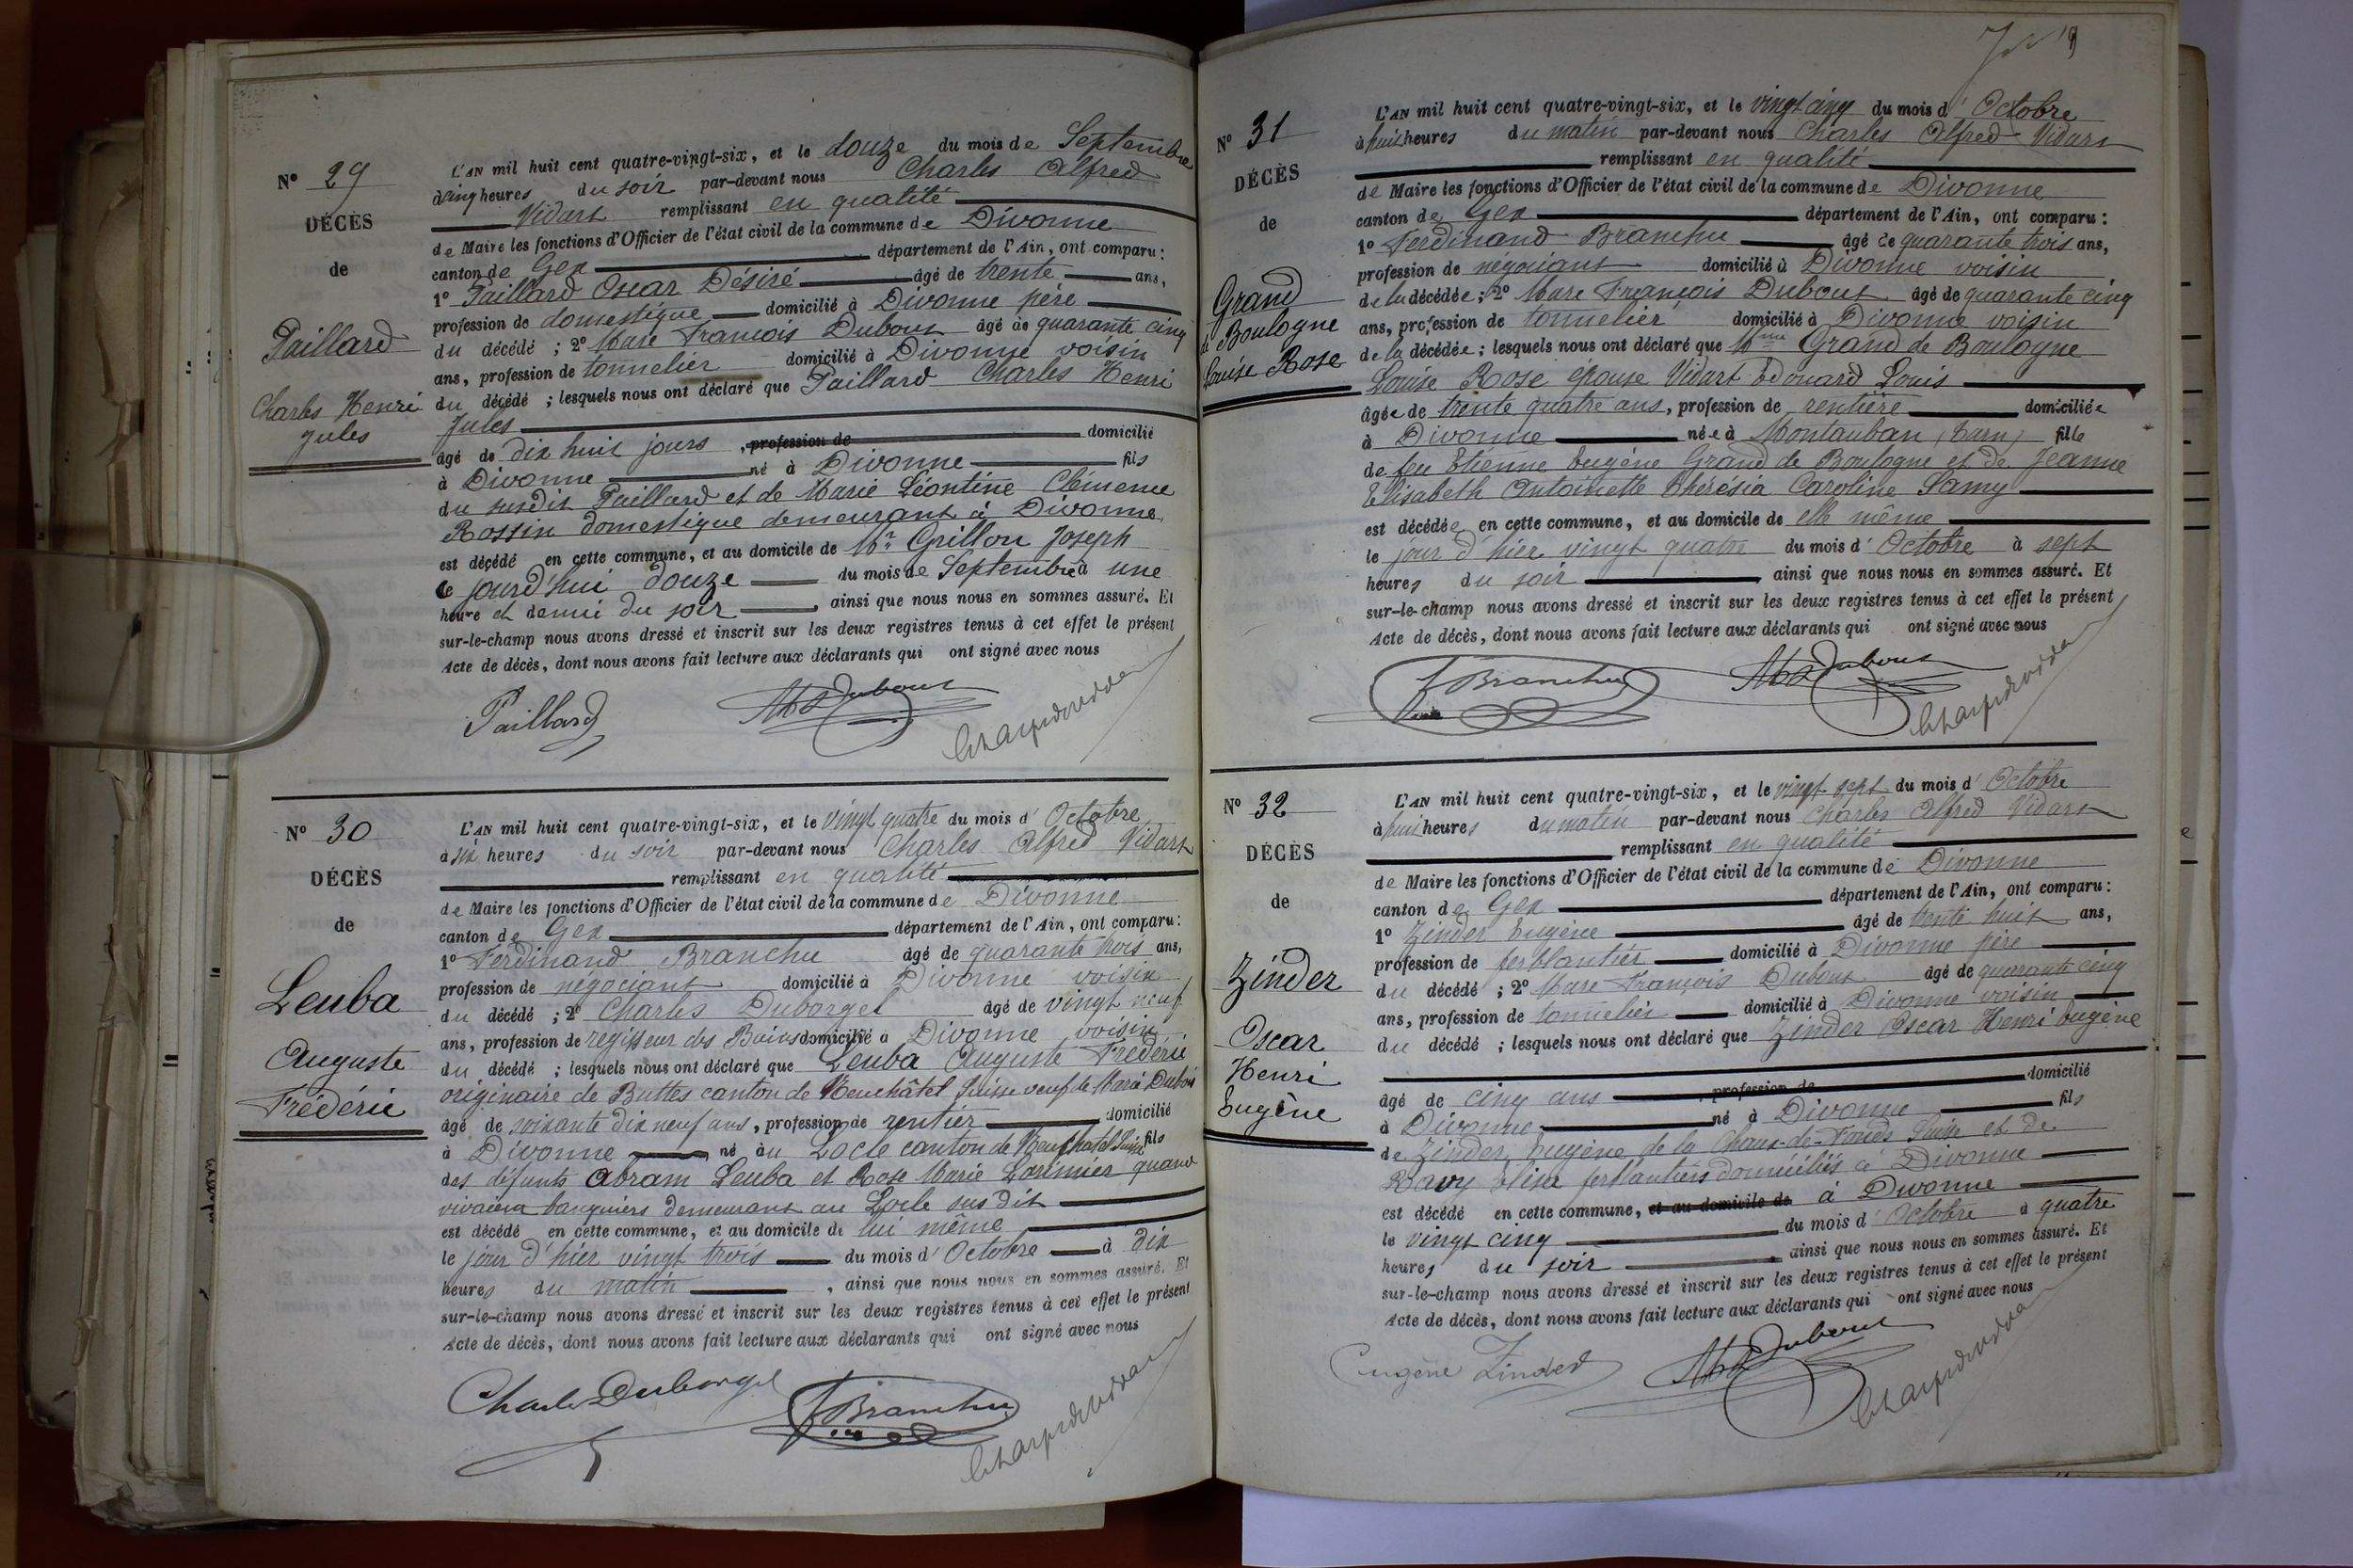 Nº 29
DÉCÈS
de
Paillard
Charles Henri
Jules
L'AN mil huit cent quatre-vingt-six, et le douze du mois de Septembre
à cinq heures du soir par-devant nous Charles Alfred
Vidart remplissant en qualité
de Maire les fonctions d'Officier de l'état civil de la commune de Divonne
canton de Gex département de l'Ain, ont comparu :
1º Paillard Oscar Désiré âgé de trente ans,
profession de domestique domicilié à Divonne père
du décédé ; 2º Marc François Dubout âgé de quarante cinq
ans, profession de tonnelier domicilié à Divonne voisin
du décédé ; lesquels nous ont déclaré que Paillard Charles Henri
Jules
âgé de dix huit jours , profession de domicilié
à Divonne né à Divonne fils
du susdit Paillard et de Marie Léontine Clémence
Rossin domestique demeurant à Divonne
est décédé en cette commune, et au domicile de Mr Grillon Joseph
ce jourd'hui douze du mois de Septembre à une
heure et demie du soir , ainsi que nous nous en sommes assuré. Et
sur-le-champ nous avons dressé et inscrit sur les deux registres tenus à cet effet le présent
Acte de décès, dont nous avons fait lecture aux déclarants qui ont signé avec nous
Paillard Dubout
Nº 30
DÉCÈS
de
Leuba
Auguste
Frédéric
L'AN mil huit cent quatre-vingt-six, et le vingt quatre du mois d' Octobre
à six heures du soir par-devant nous Charles Alfred Vidart
remplissant en qualité
de Maire les fonctions d'Officier de l'état civil de la commune de Divonne
canton de Gex département de l'Ain, ont comparu :
1º Ferdinand Branchu âgé de quarante trois ans,
profession de négociant domicilié à Divonne voisin
du décédé ; 2º Charles Duborgel âgé de vingt neuf
ans, profession de régisseur des Bains domicilié à Divonne voisin
du décédé ; lesquels nous ont déclaré que Leuba Auguste Frédéric
originaire de Buttes canton de Neuchâtel Suisse veuf de Marie Dubois
âgé de soixante dix neuf ans, profession de rentier domicilié
à Divonne né au Locle canton de Neufchatel Suisse fils
des défunts Abram Leuba et Rose Marie Lorimier quand
vivaient banquiers demeurant au Locle sus dit
est décédé en cette commune, et au domicile de lui même
le jour d'hier vingt trois du mois d' Octobre à dix
heures du matin , ainsi que nous nous en sommes assuré. Et
sur-le-champ nous avons dressé et inscrit sur les deux registres tenus à cet effet le présent
Acte de décès, dont nous avons fait lecture aux déclarants qui ont signé avec nous
Charles Duborgel Branchu
Nº 31
DÉCÈS
de
Grand
de Boulogne
Louise Rose
L'AN mil huit cent quatre-vingt-six, et le vingt cinq du mois d' Octobre
à huit heures du matin par-devant nous Charles Alfred Vidart
remplissant en qualité
de Maire les fonctions d'Officier de l'état civil de la commune de Divonne
canton de Gex département de l'Ain, ont comparu :
1º Ferdinand Branchu âgé de quarante trois ans,
profession de négociant domicilié à Divonne voisin
de la décédée ; 2º Marc François Dubout âgé de quarante cinq
ans, profession de tonnelier domicilié à Divonne voisin
de la décédée ; lesquels nous ont déclaré que Mme Grand de Boulogne
Louise Rose épouse Vidart Edouard Louis
âgée de trente quatre ans, profession de rentière domiciliée
à Divonne née à Montauban (Tarn) fille
de feu Etienne Eugène Grand de Boulogne et de Jeanne
Elisabeth Antoinette Thérésia Caroline Samy
est décédée en cette commune, et au domicile de elle même
le jour d'hier vingt quatre du mois d' Octobre à sept
heures du soir , ainsi que nous nous en sommes assuré. Et
sur-le-champ nous avons dressé et inscrit sur les deux registres tenus à cet effet le présent
Acte de décès, dont nous avons fait lecture aux déclarants qui ont signé avec nous
Branchu Dubout
Nº 32
DÉCÈS
de
Zinder
Oscar
Henri
Eugène
L'AN mil huit cent quatre-vingt-six, et le vingt sept du mois d' Octobre
à huit heures du matin par-devant nous Charles Alfred Vidart
remplissant en qualité
de Maire les fonctions d'Officier de l'état civil de la commune de Divonne
canton de Gex département de l'Ain, ont comparu :
1º Zinder Eugène âgé de trente huit ans,
profession de ferblantier domicilié à Divonne père
du décédé ; 2º Marc François Dubout âgé de quarante cinq
ans, profession de tonnelier domicilié à Divonne voisin
du décédé ; lesquels nous ont déclaré que Zinder Oscar Henri Eugène
âgé de cinq ans , profession de domicilié
à Divonne né à Divonne fils
de Zinder, Eugène de la Chaux-de-Fonds Suisse et de
Elise ferblantiers domiciliés à Divonne
est décédé en cette commune, et au domicile de à Divonne
le vingt cinq du mois d' Octobre à quatre
heures du soir , ainsi que nous nous en sommes assuré. Et
sur-le-champ nous avons dressé et inscrit sur les deux registres tenus à cet effet le présent
Acte de décès, dont nous avons fait lecture aux déclarants qui ont signé avec nous
Eugène Zinder Dubout